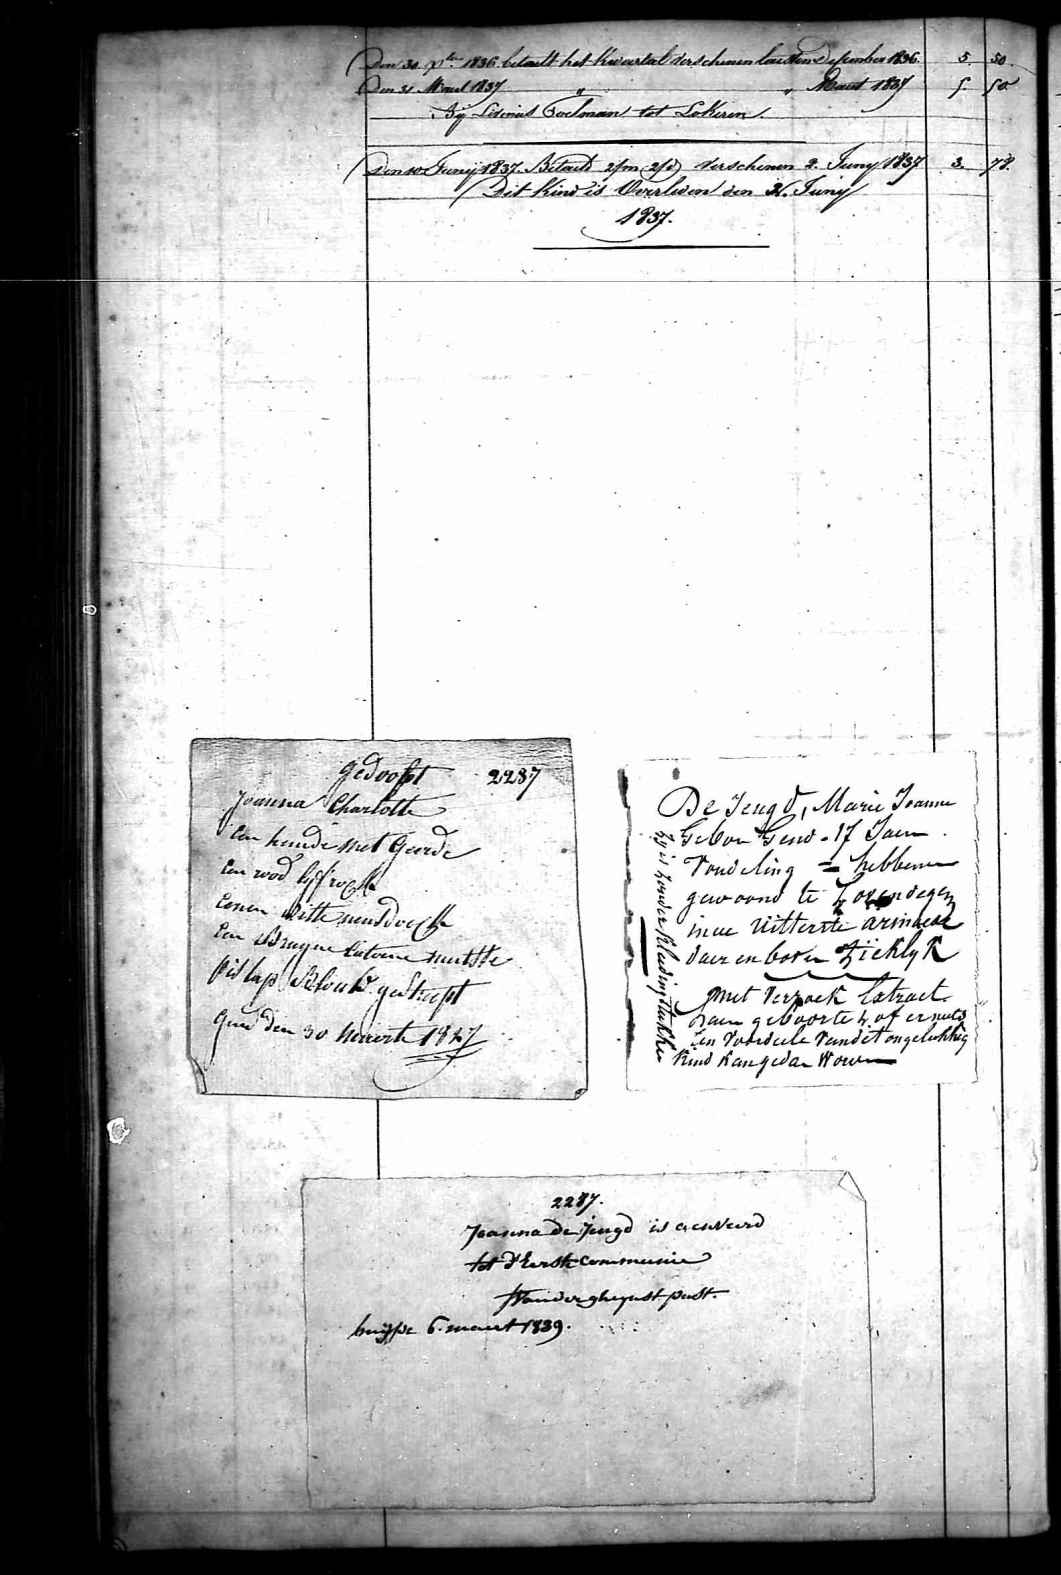 Den 30 Xbre 1836 betaelt het kwartal verschenen laesten December 1836. 5. 50.
Den 31 Maert 1837 " " Maert 1837 5. 50
By Livinus Poelman tot Lokeren.
Den 10 Juny 1837. Betaelt 2/m 2/d verschenen 2. Juny 1837 3. 78.
Dit kind is Overleden den 2. Juny
1837.
gedoopt 2287
Joanna Charlotte
Een hemde met
Een rood lyfrock
eenen witte neusdoeck
Een Bruyne catoene mutste
pis lap Blouw gestrept
gend den 30 1827
De Jeugd, Marie Joanne
Gebor Gend - 17 Jaer
Vondeling = hebbende
gewoond te Lovendegem
in de uitterste armoede
daer en boven Ziekelyk
met verzoek Extract
haer geboorte & of er niets
ten voordeele van dit ongelukkig
kind kan gedan Worden
zy is zonder kleedingstukken
2287.
Joanna de Jeugd is
tot d'Eerste communie
past.
6. maert 1839.